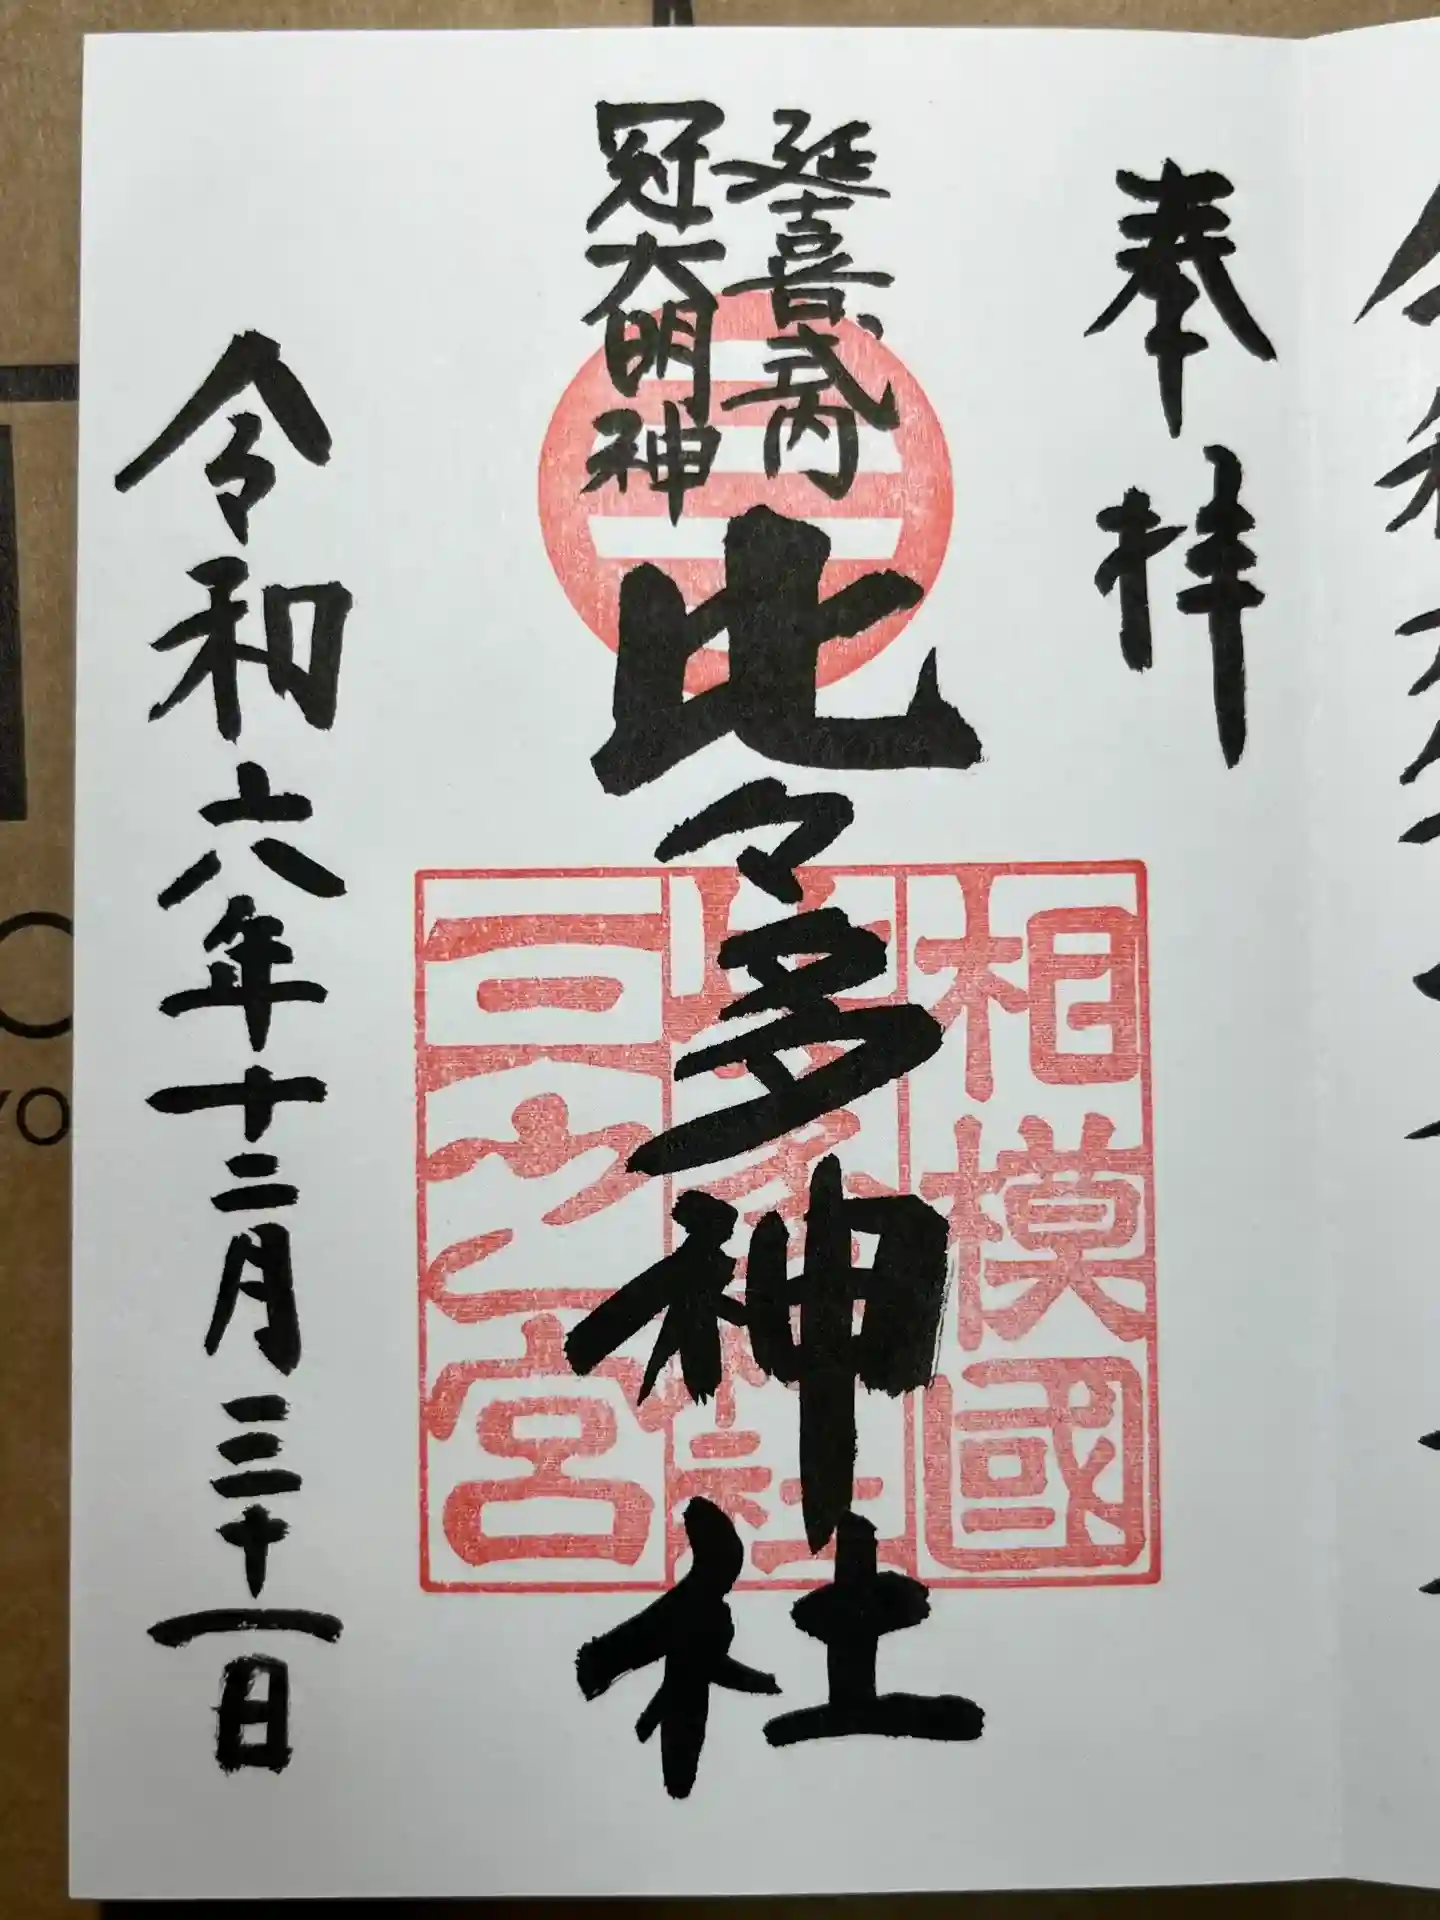 奉拝
延喜式内
冠大明神
比々多神社
相模國
三之宮
令和六年十二月三十一日